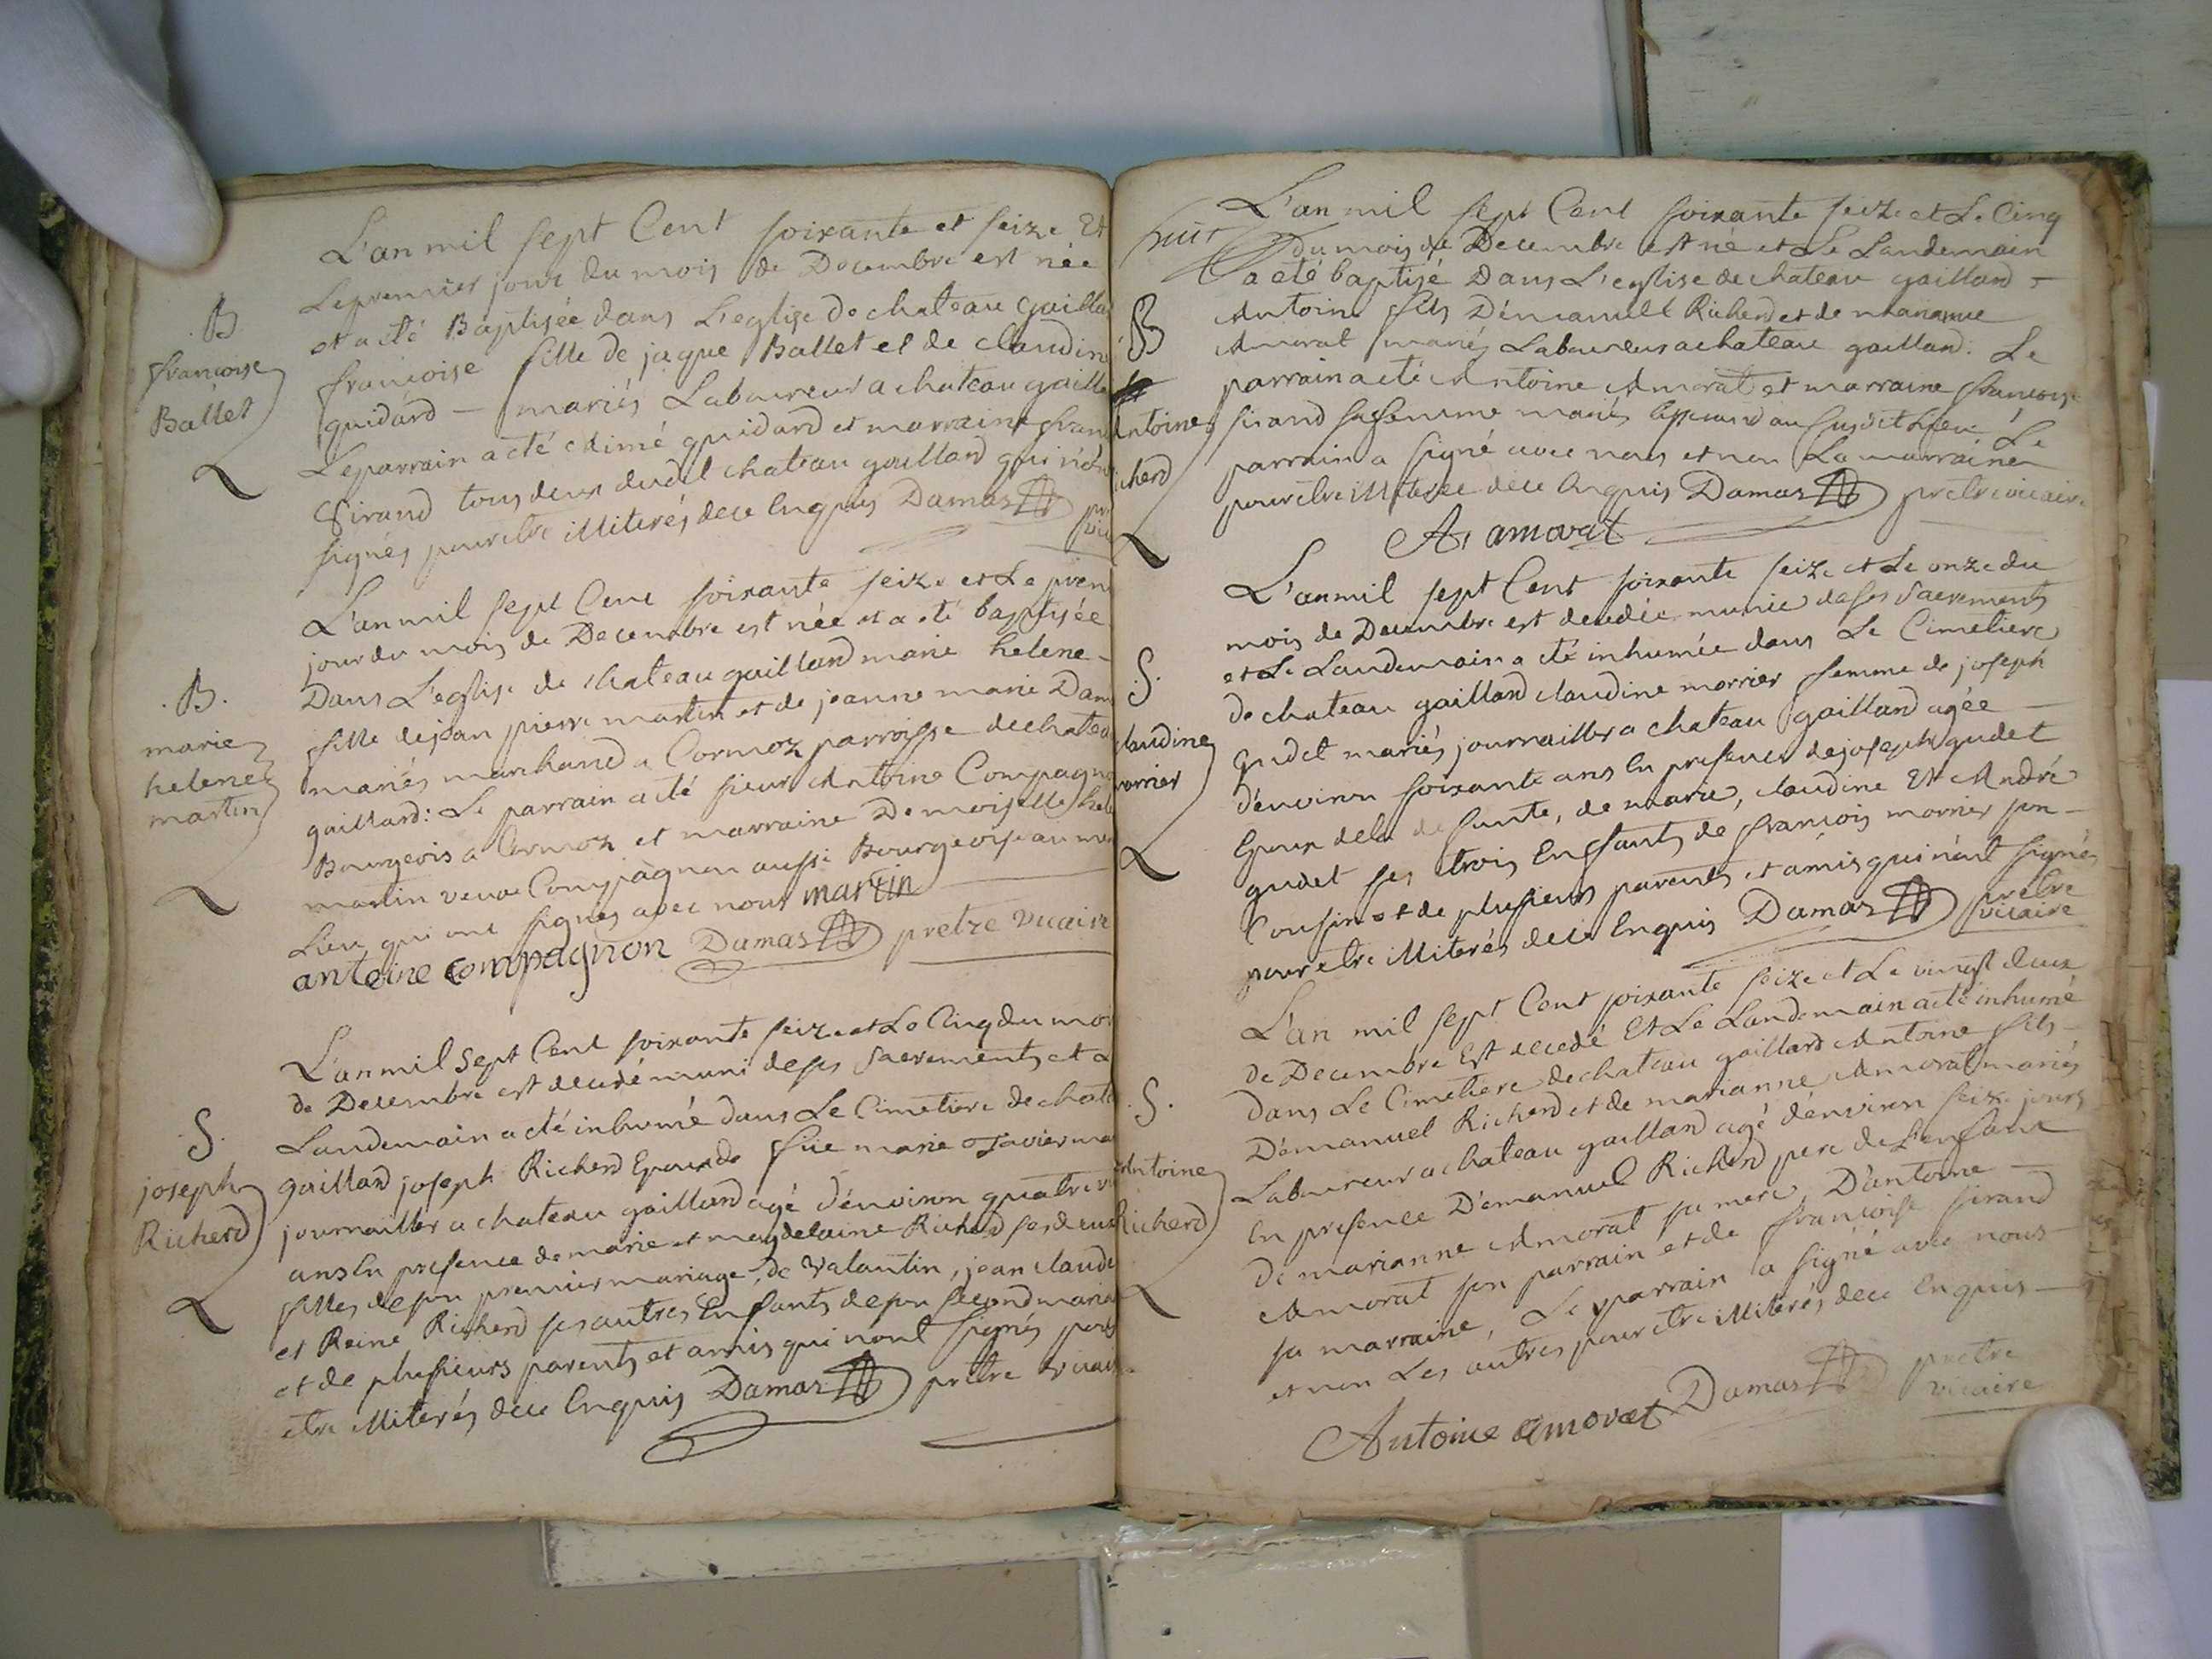 L'an mil sept Cent soixante et seize Et
Le premier jour du mois de Decembre est née
et a eté Baptisée dans L'eglise de chateau gailla
B
françoise
Ballet
françoise fille de jaque Ballet et de claudin
guidard — mariés Laboureur a chateau gailla
Le parrain a eté Aimé guidard et marraine fran
Sirand tous deux dudit chateau gaillard qui n'on
signés pour etre illiterés de ce Enquis Damas
L'an mil sept Cent soixante seize et Le prem
jour du mois de Decembre est née et a eté baptisée
Dans L'eglise de chateau gaillard marie helene -
B.
marie
helene
martin
fille de jean pierre martin et de jeanne marie Dam
mariés marchand a Cormoz parroisse de chatea
gaillard: Le parrain a eté sieur Antoine Compagno
Bourgeois a Cormoz et marraine Demoiselle hele
martin veuve Compagnon aussi Bourgeoise au me
Lieu qui ont signés avec nous martin
antoine compagnon Damas pretre vicaire
L'an mil Sept Cent soixante seize et Le Cinq du moi
de Decembre est decedé muni de ses Sacrements et L
Landemain a eté inhumé dans Le Cimetiere de chate
S.
joseph
Richerd
gaillard joseph Richerd Epoux de füe marie Tavier ma
journaillier a chateau gaillard agé d'environ quatre v
ans En presence de marie et magdelaine Richerd ses deux
filles de son premier mariage, de Valantin, jean claude
et Reine Richerd ses autres Enfants de son second maria
et de plusieurs parents et amis qui n'ont signés pour
etre illiterés de ce Enquis Damas pretre vicair
L'an mil sept Cent soixante seize et Le Cinq
huit
du mois de Decembre est né et Le Landemain
a eté baptisé Dans L'eglise de chateau gaillard -
B
Antoine
icherd
Antoine fils D'emanuel Richerd et de marianne
Amorat mariés Laboureur a chateau gaillard. Le
parrain a eté Antoine Amorat et marraine françoise
sirand sa femme mariés au susdit Lieu, Le
parrain a signé avec nous et non La marraine
pour etre illiterée de ce Enquis Damas pretre vicaire
A, amorat
L'an mil sept Cent soixante seize et Le onze du
mois de Decembre est decedée munie de ses Sacrements
et Le Landemain a eté inhumée dans Le Cimetiere
S.
laudine
orrier
de chateau gaillard claudine morrier femme de joseph
gudet mariés journaillier a chateau gaillard agée —
d'environ soixante ans En presence de joseph gudet
Epoux de la defunte, de marie, claudine Et André
gudet ses trois Enfants de françois morrier son -
Cousin et de plusieurs parents et amis qui n'ont signés
pour etre illiterés de ce Enquis Damas pretre
vicaire
L'an mil sept Cent soixante seize et Le vingt deux
de Decembre Est decedé Et Le Landemain a eté inhumé
dans Le Cimetiere de chateau gaillard Antoine fils -
S.
Antoine
Richerd
D'emanuel Richerd et de marianne Amorat mariés
Laboureur a chateau gaillard agé d'environ seize jours
En presence D'emanuel Richerd pere de L'enfant
de marianne Amorat sa mere, D'antoine —
Amorat son parrain et de françoise sirand
sa marraine, Le parrain a signé avec nous
et non Les autres pour etre illiterés de ce Enquis —
Antoine amorat Damas pretre
vicaire